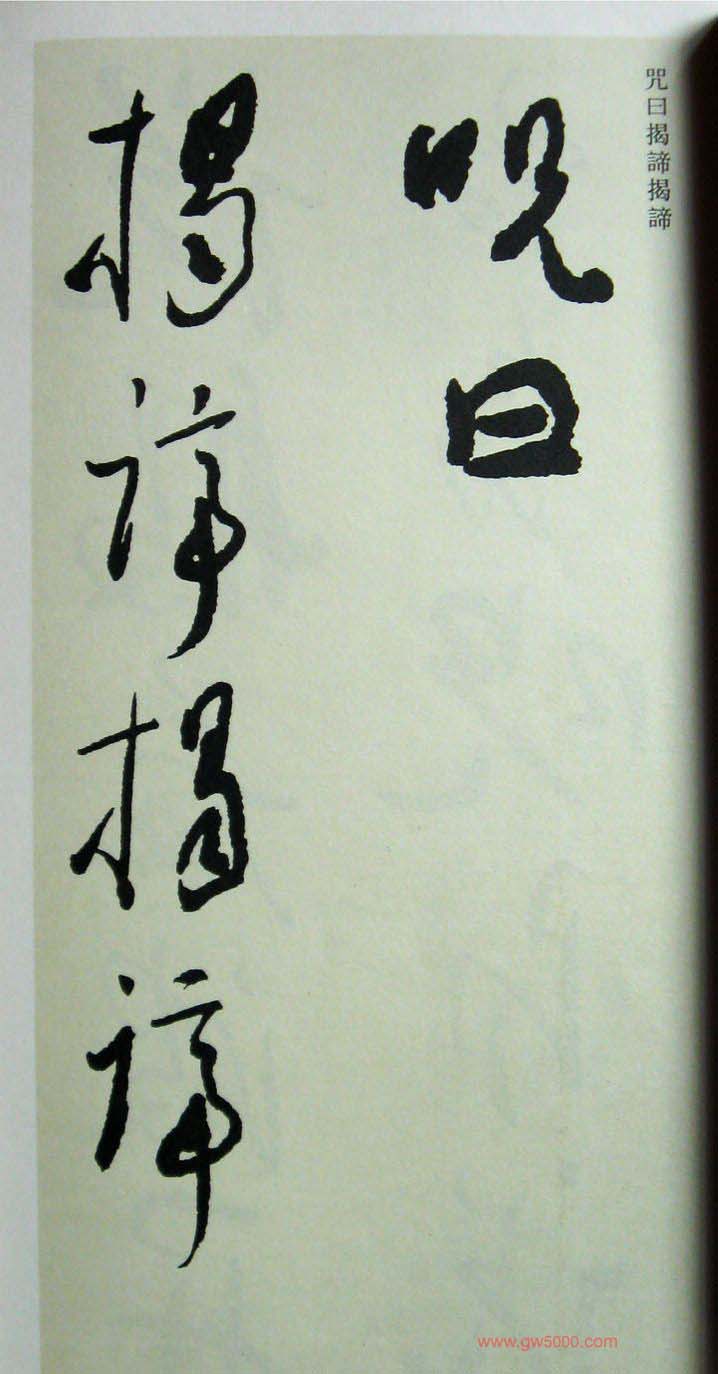 咒曰揭諦揭諦
呪曰
揭諦揭諦
www.gw5000.com